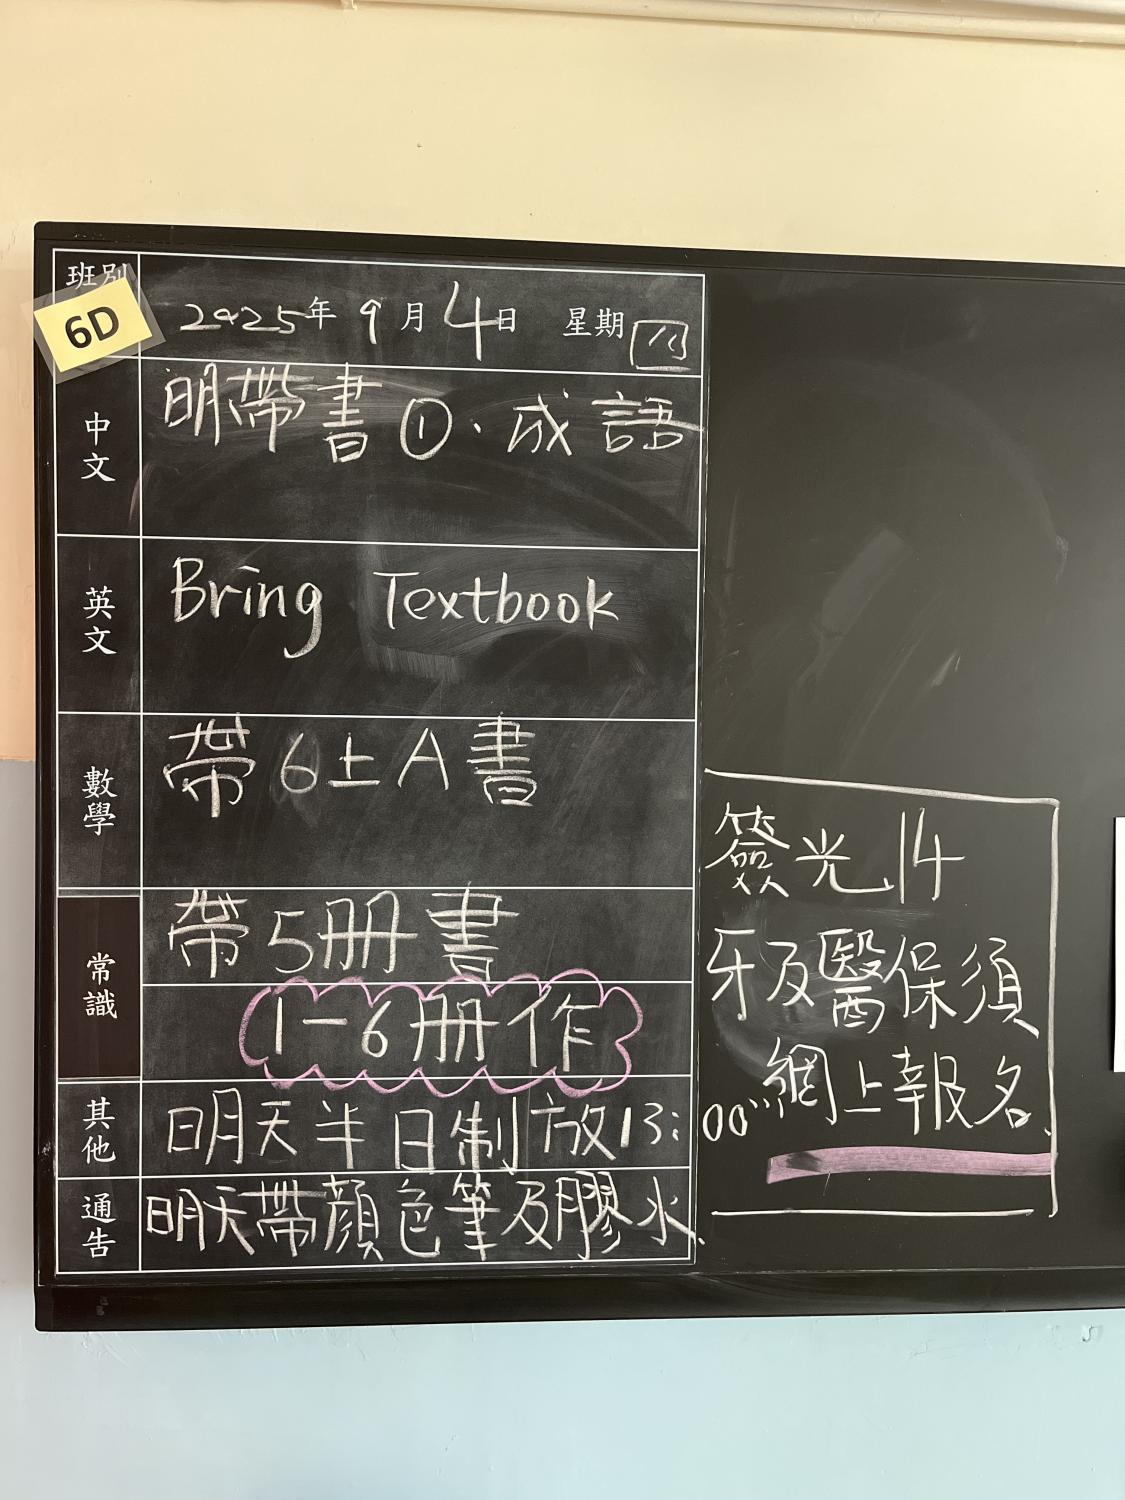 班別
6D
2025年9月4日 星期四
中文
明帶書①、成語
英文
Bring Textbook
數學
帶6上A書
常識
帶5册書
1-6册作
其他
明天半日制放13:00
通告
明天帶顏色筆及膠水.
簽光14
牙及醫保須
網上報名.